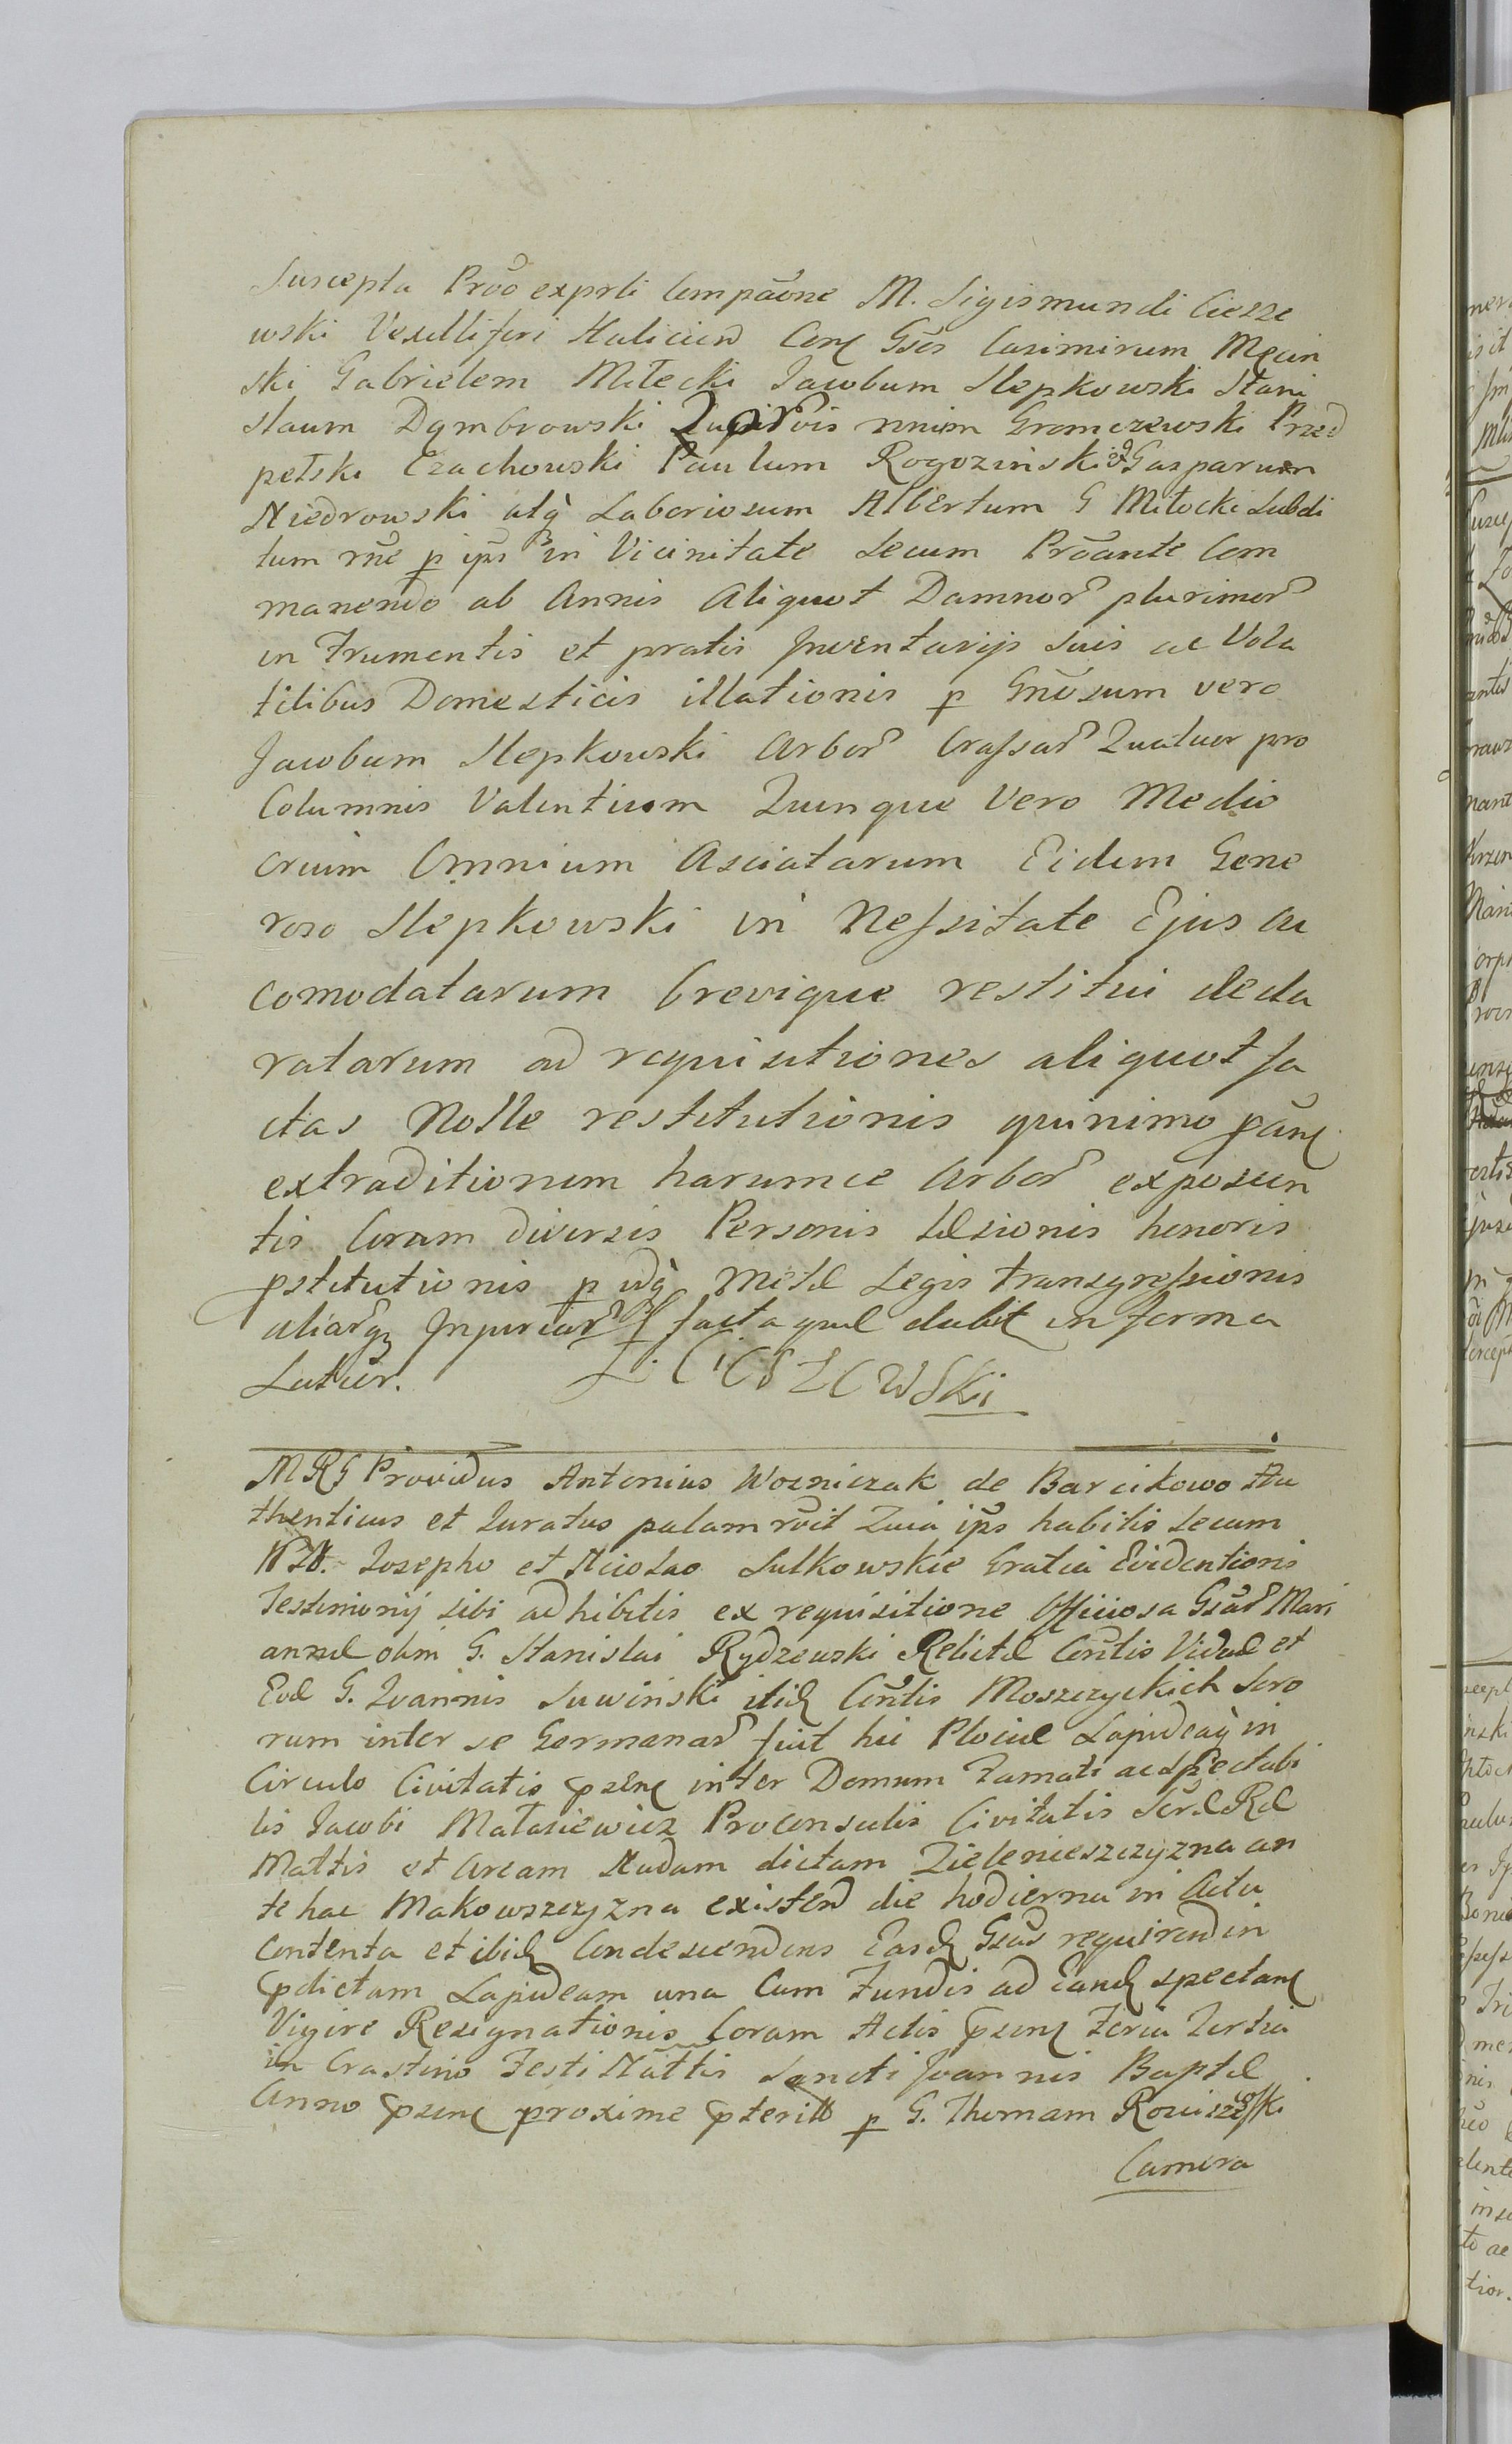 Suscepta Prõo exprti Compãone M. Sigismundi Ciesze
wski Vexilliferi Haliciend Conѯ Gsõs Casimirum Męcin
ski Gabrielem Miłecki Jacobum Slepkowski Stani
slaum Dąmbrowski nnim Gromczewski Przed
pełski Czachowski Paulum Rogozinski & Gasparum
Niedrowski atq̀ Laboriosum Albertum G Miłocki Subdi
tum rñe p ips in Vicinitate Secum Prõante Com
manendo ab Annis Aliquot Damnor plurimor
in Frumentis et pratis Inventarijs suis ac Vola
tilibus Domesticis illationis p Gnõsum vero
Jacobum Slepkowski Arbor Crassar Quatuor pro
Columnis Valentium Quinque Vero Medio
crium Omnium Asciatarum Eidem Gene
roso Slepkowski in Nessitate Ejus Ac
comodatarum brevique restitui decla
ratarum ad requisitiones aliquot fa
ctas Nolle restitutionis quinimo
extraditionem harumce Arbor exposcen
tis Coram diversis Personis Læsionis honoris
pstitutionis p idq̀ Metæ Legis transgressionis
aliarq Injuriar facta quæ dabit in forma
Latior. Z. CiESZEWSkii
MRG Providus Antonius Wozniczak de Barcikowo Au
thenticus et Juratus palam rõit Quia ips habitis secum
NN. Josepho et Nicolao Sulkowskie Gratia Evidentioris
Testimonij sibi adhibitis ex requisitione Officiosa Gsar Mari
annæ olim G. Stanislai Rydzewski Relictæ Contis Viduæ et
Evæ G. Joannis Suwinski itid Contis Moszczyckich Soro
rum inter se Germanar fuit hic Plociæ Lapideaq̀ in
Circulo Civitatis psenѯ inter Domum Famati ac Spectabi
lis Jacobi Matasiewicz Proconsulis Civitatis Sæ Ræ
Mattis et Aream Nudam dictam Zielenieszczyzna an
te hac Makowszczyzna existend die hodierna in Actu
Contenta et ibid Condescendens Easd Gsas requirend in
pdictam Lapideam una Cum Fundis ad Eand spectanѯ
Vigire Resignationis Coram Actis psenѯ Feria Tertia
in Crastino Festi Nattis Sancti Joannis Baptæ
Anno psenѯ proxime pterito p G. Thomam Rosciszewski
Camera